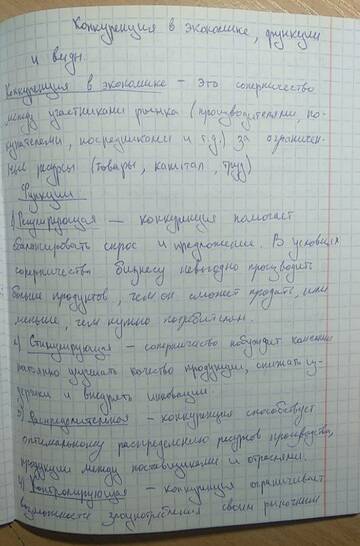 Конкуренция в экономике, функции
и виды.
Конкуренция в экономике – это соперничество
между участниками рынка (производителями, по-
купателями, посредниками и т.д.) за ограничен-
ные ресурсы (товары, капитал, труд)
Функции
1) Регулирующая — конкуренция помогает
балансировать спрос и предложение. В условиях
соперничества бизнесу невыгодно производить
больше продуктов, чем он сможет продать, или
меньше, чем нужно потребителям.
2) Стимулирующая – соперничество побуждает компании
постоянно улучшать качество продукции, снижать из-
держки и внедрять инновации.
3) Распределительная – конкуренция способствует
оптимальному распределению ресурсов производства,
продукции между поставщиками и отраслями.
4) Контролирующая – конкуренция ограничивает
возможности злоупотребления своим рыночным